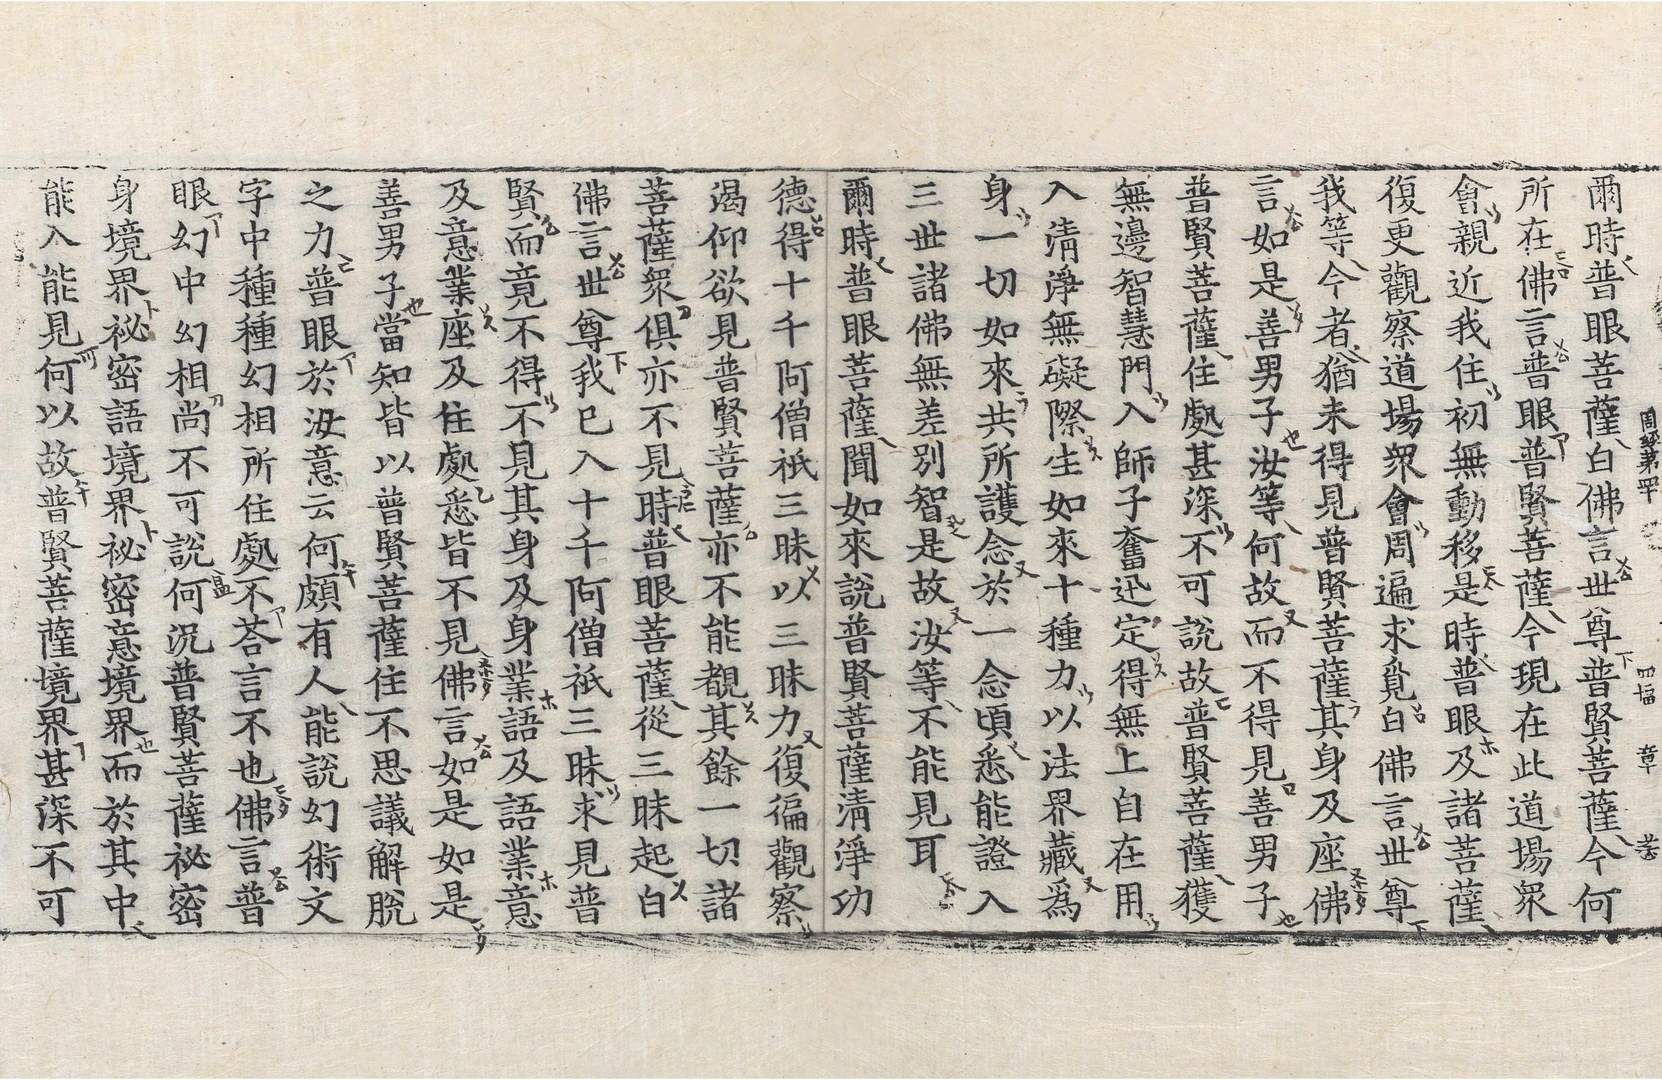 爾時普眼菩薩白佛言世尊普賢菩薩今何
所在佛言普眼普賢菩薩今現在此道場衆
會親近我住初無動移是時普眼及諸菩薩
復更觀察道場衆會周遍求覓白佛言世尊
我等今者猶未得見普賢菩薩其身及座佛
言如是善男子汝等何故而不得見善男子
普賢菩薩住處甚深不可說故普賢菩薩獲
無邊智慧門入師子奮迅定得無上自在用
入清淨無礙際生如來十種力以法界藏爲
身一切如來共所護念於一念頃悉能證入
三世諸佛無差別智是故汝等不能見耳
爾時普眼菩薩聞如來說普賢菩薩清淨功
德得十千阿僧祇三昧以三昧力復徧觀察
渴仰欲見普賢菩薩亦不能覩其餘一切諸
菩薩衆俱亦不見時普眼菩薩從三昧起白
佛言世尊我已入十千阿僧祇三昧求見普
賢而竟不得不見其身及身業語及語業意
及意業座及住處悉皆不見佛言如是如是
善男子當知皆以普賢菩薩住不思議解脫
之力普眼於汝意云何頗有人能說幻術文
字中種種幻相所住處不荅言不也佛言普
眼幻中幻相尚不可說何況普賢菩薩祕密
身境界祕密語境界祕密意境界而於其中
能入能見何以故普賢菩薩境界甚深不可